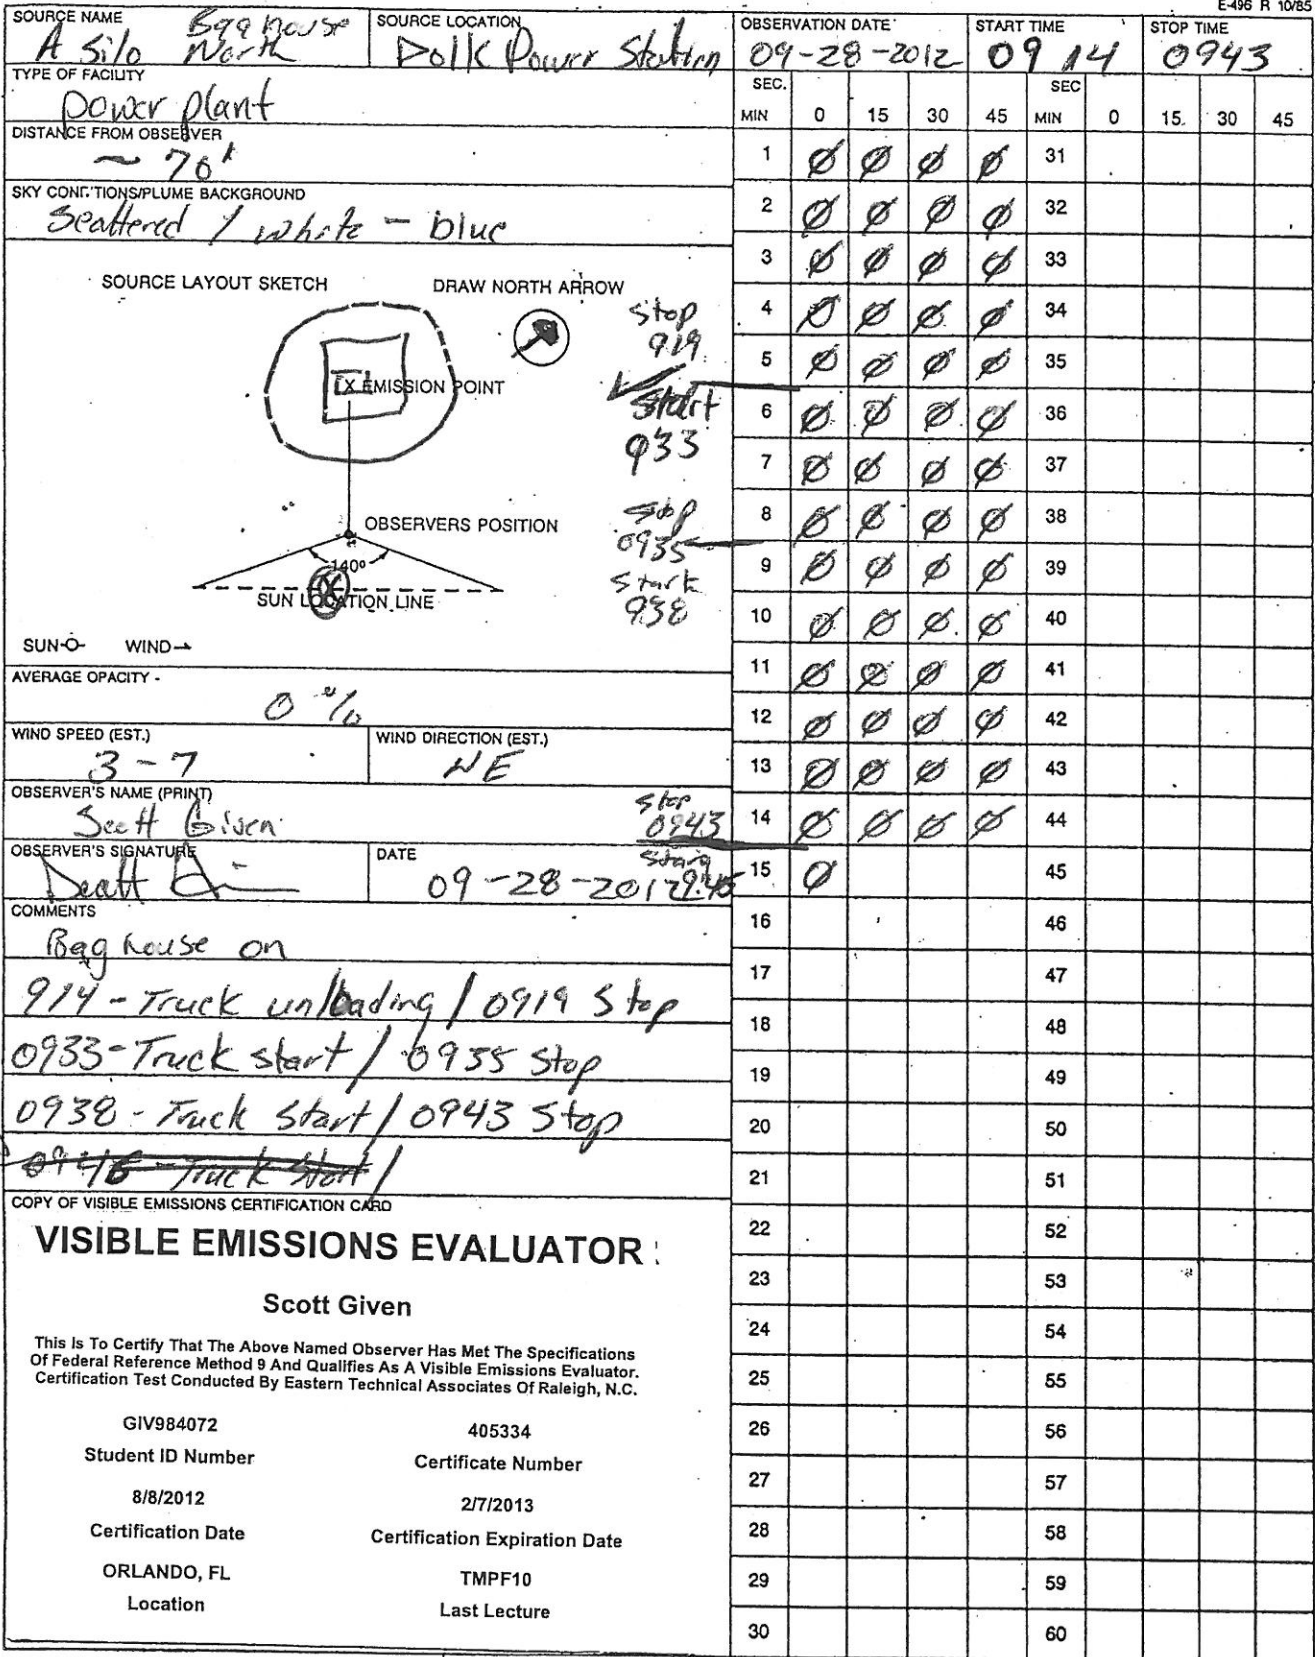 E-496 R 10/85
SOURCE NAME
A Silo Bag house North
SOURCE LOCATION
Polk Power Station
OBSERVATION DATE
09-28-2012
START TIME
09 14
STOP TIME
0943
TYPE OF FACILITY
power plant
DISTANCE FROM OBSERVER
~ 70'
SKY CONDITIONS/PLUME BACKGROUND
Scattered / white - blue
SOURCE LAYOUT SKETCH
DRAW NORTH ARROW
X EMISSION POINT
OBSERVERS POSITION
140°
SUN LOCATION LINE
SUN WIND
Stop
919
Start
933
Stop
0935
Start
938
AVERAGE OPACITY -
0 %
WIND SPEED (EST.)
3 - 7
WIND DIRECTION (EST.)
NE
OBSERVER'S NAME (PRINT)
Scott Given
stop
0943
OBSERVER'S SIGNATURE
Scott
DATE
09-28-2012
COMMENTS
Bag house on
914 - Truck unloading / 0919 Stop
0933 - Truck start / 0935 Stop
0938 - Truck Start / 0943 Stop
Truck Start /
COPY OF VISIBLE EMISSIONS CERTIFICATION CARD
VISIBLE EMISSIONS EVALUATOR
Scott Given
This Is To Certify That The Above Named Observer Has Met The Specifications
Of Federal Reference Method 9 And Qualifies As A Visible Emissions Evaluator.
Certification Test Conducted By Eastern Technical Associates Of Raleigh, N.C.
GIV984072 405334
Student ID Number Certificate Number
8/8/2012 2/7/2013
Certification Date Certification Expiration Date
ORLANDO, FL TMPF10
Location Last Lecture
SEC. SEC
MIN 0 15 30 45 MIN 0 15. 30 45
1 Ø Ø Ø Ø 31
2 Ø Ø Ø Ø 32
3 Ø Ø Ø Ø 33
4 Ø Ø Ø Ø 34
5 Ø Ø Ø Ø 35
6 Ø Ø Ø Ø 36
7 Ø Ø Ø Ø 37
8 Ø Ø Ø Ø 38
9 Ø Ø Ø Ø 39
10 Ø Ø Ø Ø 40
11 Ø Ø Ø Ø 41
12 Ø Ø Ø Ø 42
13 Ø Ø Ø Ø 43
14 Ø Ø Ø Ø 44
15 Ø 45
16 46
17 47
18 48
19 49
20 50
21 51
22 52
23 53
24 54
25 55
26 56
27 57
28 58
29 59
30 60